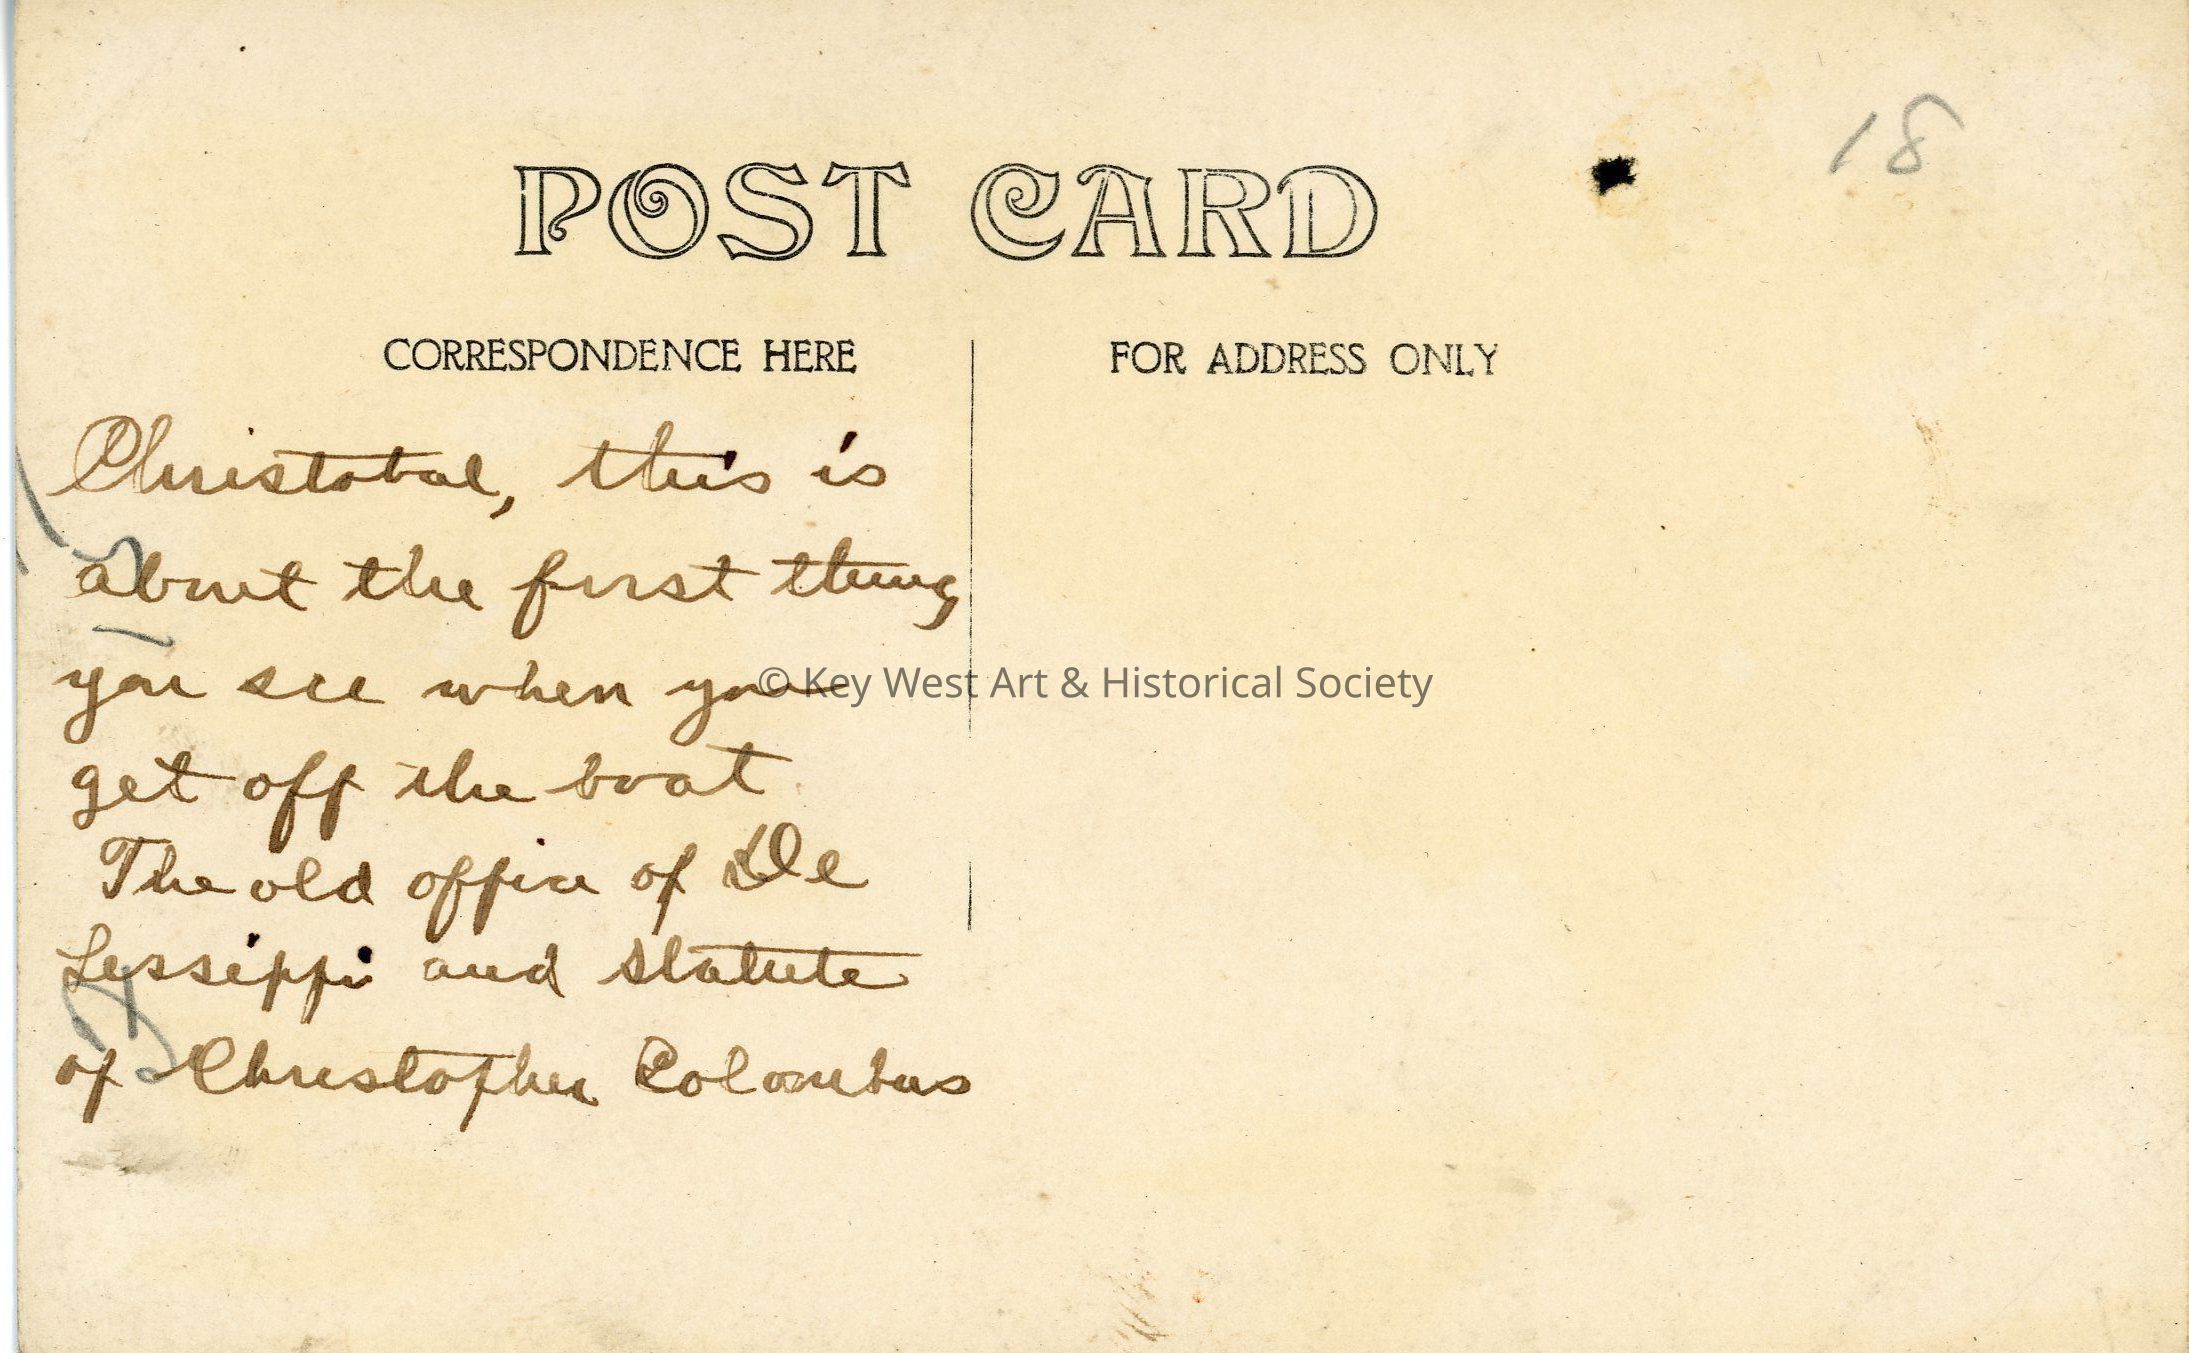 18
POST CARD
CORRESPONDENCE HERE
FOR ADDRESS ONLY
Christobal, this is
about the first thing
you see when you
get off the boat
The old office of De
Lessippi and statute
of Christopher Colombus
© Key West Art & Historical Society